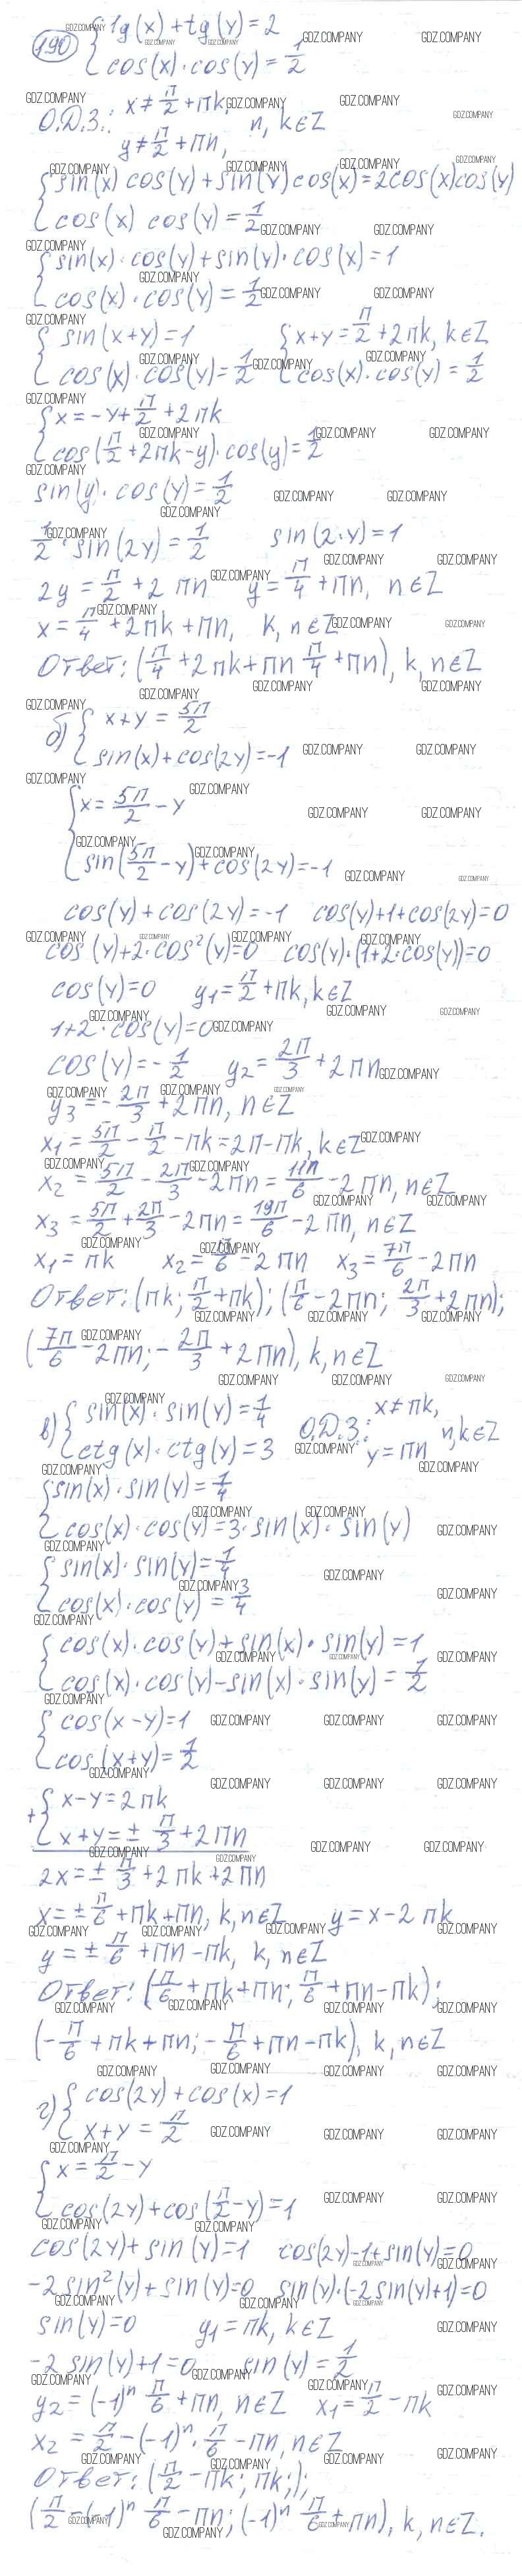 190 { tg(x)+tg(y)=2
cos(x)·cos(y)=1/2
О.Д.З.: x≠π/2+πk,
y≠π/2+πn, n, k∈Z
{ sin(x) cos(y)+sin(y)cos(x)=2cos(x)cos(y)
cos(x) cos(y)=1/2
{ sin(x)·cos(y)+sin(y)·cos(x)=1
cos(x)·cos(y)=1/2
{ sin(x+y)=1 { x+y=π/2+2πk, k∈Z
cos(x)·cos(y)=1/2 cos(x)·cos(y)=1/2
{ x=-y+π/2+2πk
cos(π/2+2πk-y)·cos(y)=1/2
sin(y)·cos(y)=1/2
1/2·sin(2y)=1/2 sin(2·y)=1
2y=π/2+2πn y=π/4+πn, n∈Z
x=π/4+2πk+πn, k, n∈Z
Ответ: (π/4+2πk+πn π/4+πn), k, n∈Z
б) { x+y=5π/2
sin(x)+cos(2y)=-1
{ x=5π/2-y
sin(5π/2-y)+cos(2y)=-1
cos(y)+cos(2y)=-1 cos(y)+1+cos(2y)=0
cos(y)+2·cos²(y)=0 cos(y)·(1+2·cos(y))=0
cos(y)=0 y₁=π/2+πk, k∈Z
1+2·cos(y)=0
cos(y)=-1/2 y₂=2π/3+2πn
y₃=-2π/3+2πn, n∈Z
x₁=5π/2-π/2-πk=2π-πk, k∈Z
x₂=5π/2-2π/3-2πn=11π/6-2πn, n∈Z
x₃=5π/2+2π/3-2πn=19π/6-2πn, n∈Z
x₁=πk x₂=π/6-2πn x₃=7π/6-2πn
Ответ: (πk; π/2+πk); (π/6-2πn; 2π/3+2πn);
(7π/6-2πn; -2π/3+2πn), k, n∈Z
в) { sin(x)·sin(y)=1/4 О.Д.З.: x≠πk,
ctg(x)·ctg(y)=3 y=πn n, k∈Z
{ sin(x)·sin(y)=1/4
cos(x)·cos(y)=3·sin(x)·sin(y)
{ sin(x)·sin(y)=1/4
cos(x)·cos(y)=3/4
{ cos(x)·cos(y)+sin(x)·sin(y)=1
cos(x)·cos(y)-sin(x)·sin(y)=1/2
{ cos(x-y)=1
cos(x+y)=1/2
+{ x-y=2πk
x+y=±π/3+2πn
2x=±π/3+2πk+2πn
x=±π/6+πk+πn, k, n∈Z y=x-2πk
y=±π/6+πn-πk, k, n∈Z
Ответ: (π/6+πk+πn; π/6+πn-πk);
(-π/6+πk+πn; -π/6+πn-πk), k, n∈Z
г) { cos(2y)+cos(x)=1
x+y=π/2
{ x=π/2-y
cos(2y)+cos(π/2-y)=1
cos(2y)+sin(y)=1 cos(2y)-1+sin(y)=0
-2sin²(y)+sin(y)=0 sin(y)·(-2sin(y)+1)=0
sin(y)=0 y₁=πk, k∈Z
-2sin(y)+1=0 sin(y)=1/2
y₂=(-1)ⁿ π/6+πn, n∈Z x₁=π/2-πk
x₂=π/2-(-1)ⁿ·π/6-πn, n∈Z
Ответ: (π/2-πk; πk;);
(π/2-(-1)ⁿ π/6-πn; (-1)ⁿ π/6+πn), k, n∈Z.
GDZ.COMPANY